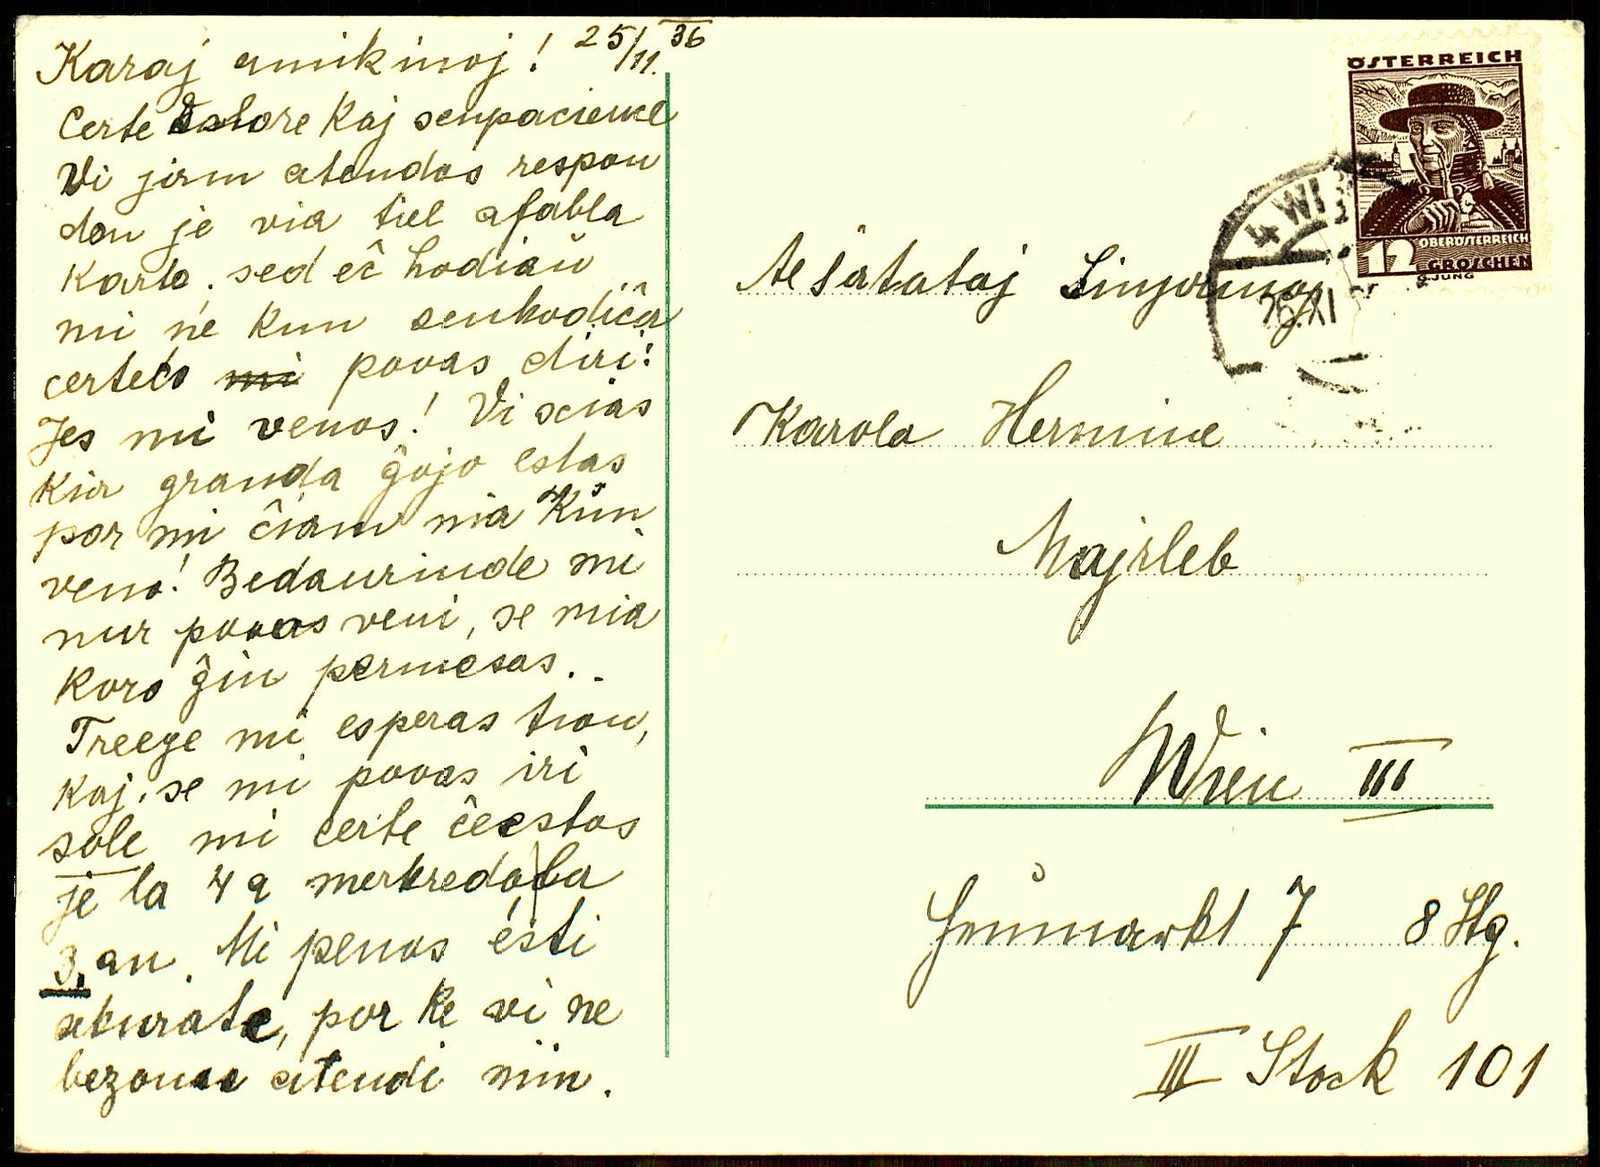 Karaj amikinoj! 25/11. 36
Certe dolore kaj senpacience
Vi jam atendas respon
don je via tiel afabla
karto, sed eĉ hodiaŭ
mi ne kun senkodiĉa
certeco mi povas diri:
Jes mi venos! Vi scias
kia granda ĝojo estas
por mi ĉiam nia kun
veno! Bedaurinde mi
nur povas veni, se mia
koro ĝin permesas..
Treege mi esperas tion,
kaj, se mi povas iri
sole mi certe ĉeestos
je la 4a merkredo la
3. an. Mi penos esti
akurate, por ke vi ne
bezonas atendi min.
ÖSTERREICH
12 OBERÖSTERREICH
GROSCHEN
G.JUNG
4 WI
26.XI
Al ŝatataj Sinjorinoj
Karola Hermine
Majsleb
Wien III
Heumarkt 7 8 Stg.
III Stock 101